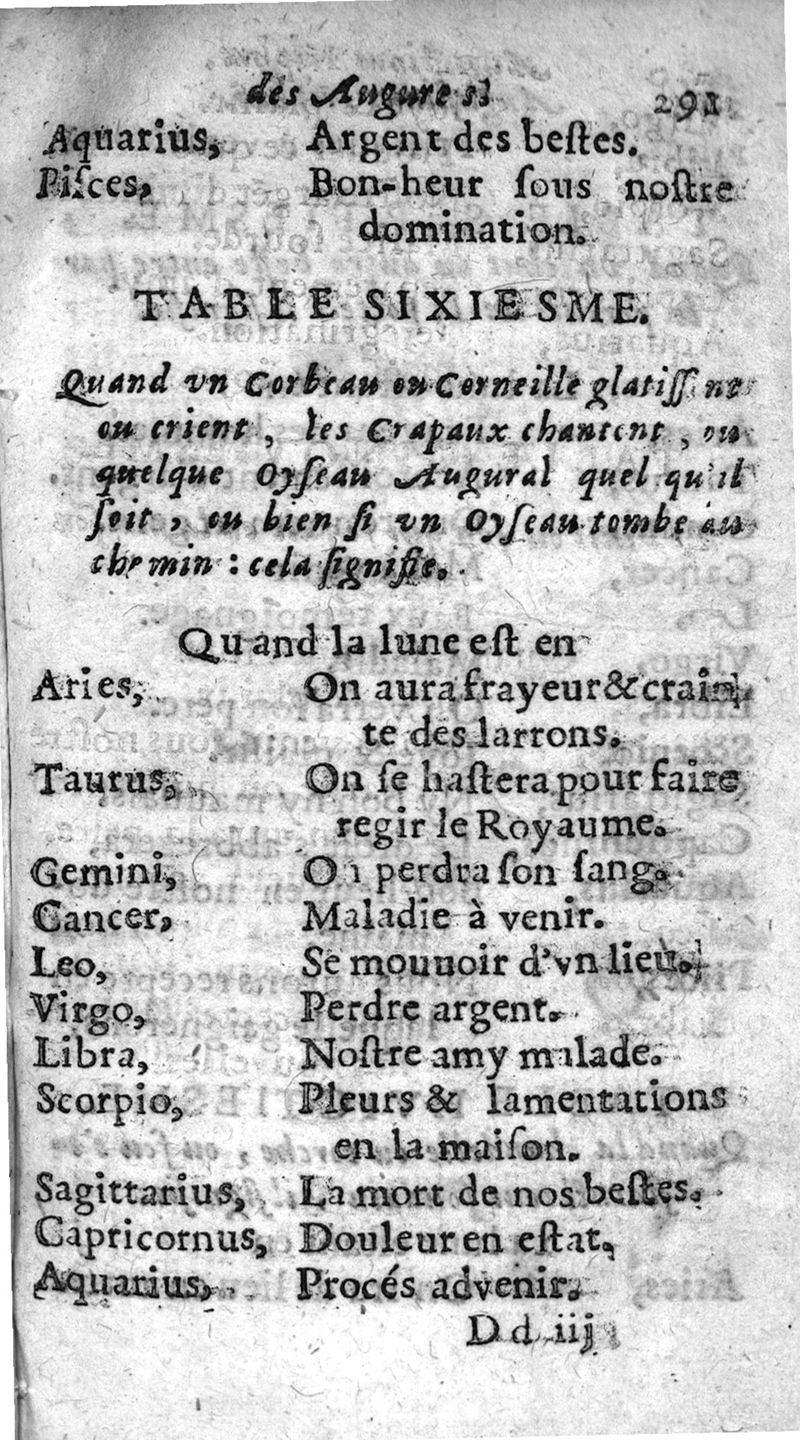 des Augures 291
Aquarius, Argent des bestes.
Piſces, Bon-heur ſous noſtre
domination.
TABLE SIXIESME.
Quand vn Corbeau ou Corneille glatiſſent
ou crient, les Crapaux chantent, ou
quelque Oyſeau Augural quel qu'il
ſoit, ou bien ſi vn Oyſeau tombe au
chemin : cela ſignifie.
Quand la lune eſt en
Aries, On aura frayeur & crain-
te des larrons.
Taurus, On ſe haſtera pour faire
regir le Royaume.
Gemini, On perdra ſon ſang.
Cancer, Maladie à venir.
Leo, Se mouuoir d'vn lieu.
Virgo, Perdre argent.
Libra, Noſtre amy malade.
Scorpio, Pleurs & lamentations
en la maiſon.
Sagittarius, La mort de nos beſtes.
Capricornus, Douleur en eſtat,
Aquarius, Procés advenir.
Dd iij